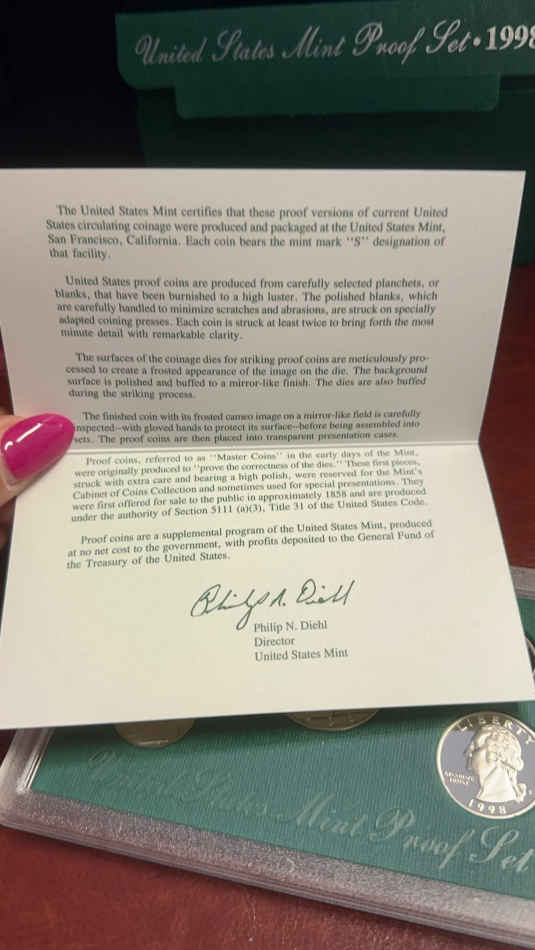 United States Mint Proof Set • 1998
The United States Mint certifies that these proof versions of current United
States circulating coinage were produced and packaged at the United States Mint,
San Francisco, California. Each coin bears the mint mark ''S'' designation of
that facility.
United States proof coins are produced from carefully selected planchets, or
blanks, that have been burnished to a high luster. The polished blanks, which
are carefully handled to minimize scratches and abrasions, are struck on specially
adapted coining presses. Each coin is struck at least twice to bring forth the most
minute detail with remarkable clarity.
The surfaces of the coinage dies for striking proof coins are meticulously pro-
cessed to create a frosted appearance of the image on the die. The background
surface is polished and buffed to a mirror-like finish. The dies are also buffed
during the striking process.
The finished coin with its frosted cameo image on a mirror-like field is carefully
inspected--with gloved hands to protect its surface--before being assembled into
sets. The proof coins are then placed into transparent presentation cases.
Proof coins, referred to as ''Master Coins'' in the early days of the Mint,
were originally produced to ''prove the correctness of the dies.'' These first pieces,
struck with extra care and bearing a high polish, were reserved for the Mint's
Cabinet of Coins Collection and sometimes used for special presentations. They
were first offered for sale to the public in approximately 1858 and are produced
under the authority of Section 5111 (a)(3), Title 31 of the United States Code.
Proof coins are a supplemental program of the United States Mint, produced
at no net cost to the government, with profits deposited to the General Fund of
the Treasury of the United States.
Philip N. Diehl
Philip N. Diehl
Director
United States Mint
LIBERTY
IN GOD WE
TRUST
1998
United States Mint Proof Set